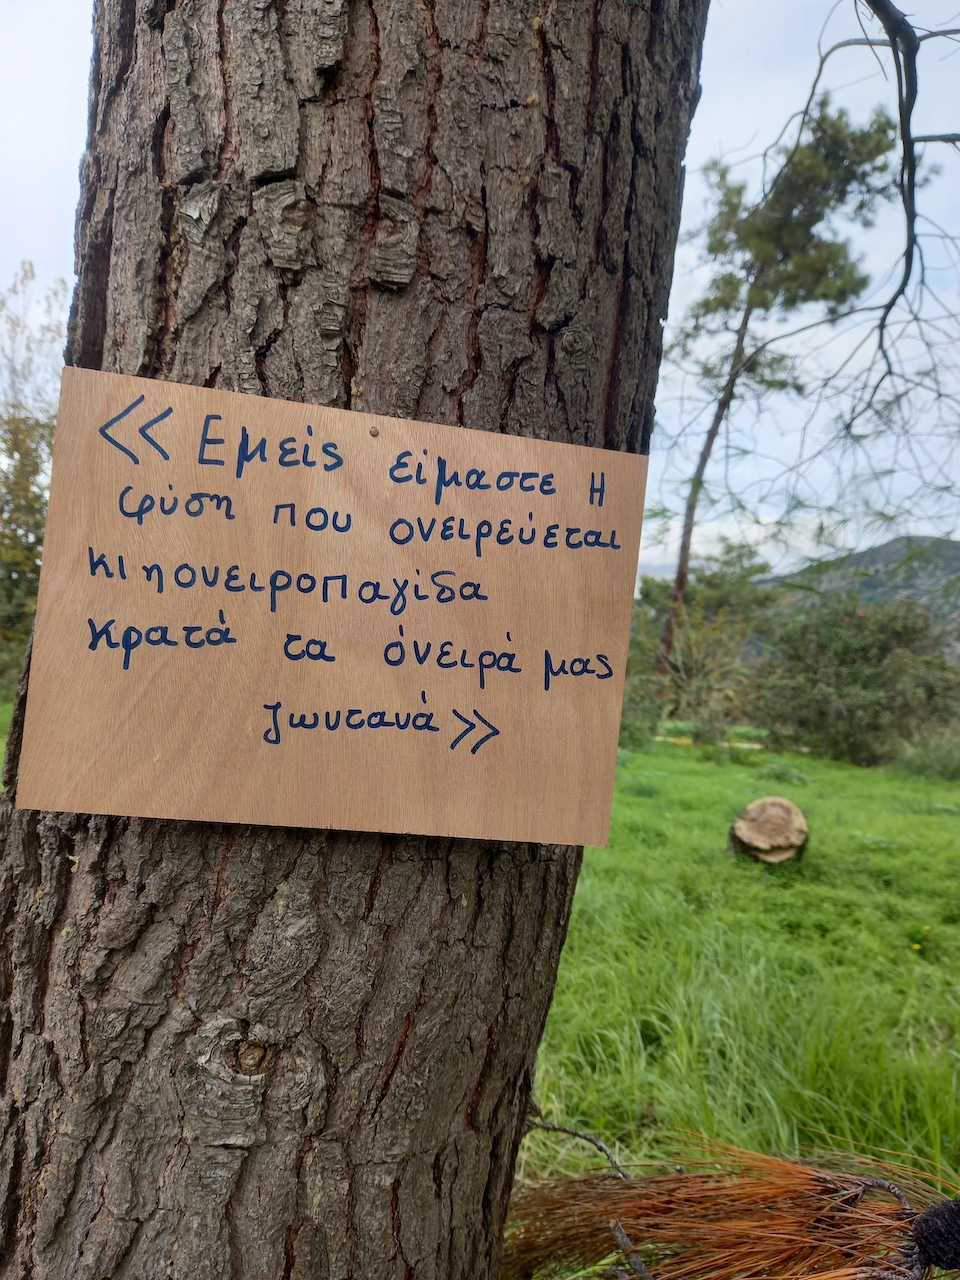 << Εμείς είμαστε Η
φύση που ονειρεύεται
κι η ονειροπαγίδα
κρατά τα όνειρά μας
ζωντανά >>